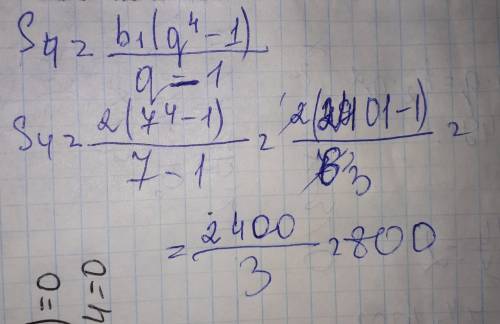 S4 = b1(q^4 - 1) / q - 1
S4 = 2(7^4 - 1) / 7 - 1 = 2(2401 - 1) / 3 =
= 2400 / 3 = 800
)=0
4=0